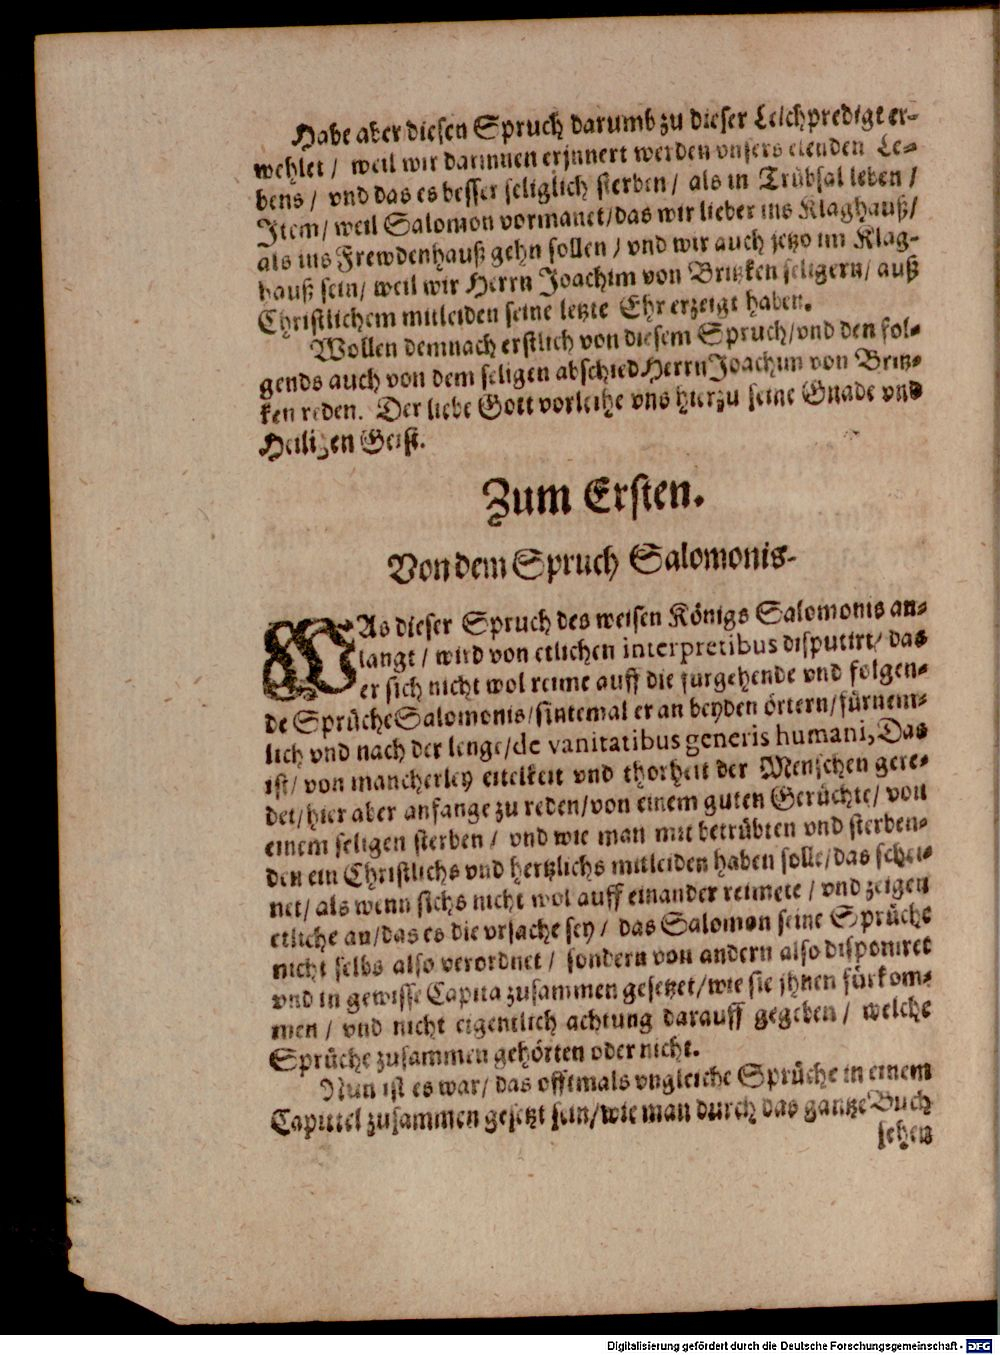 Habe aber diesen Spruch darumb zu dieser Leichpredigt er-
wehlet / weil wir darinnen erjnnert werden vnsers elenden Le-
bens / vnd das es besser seliglich sterben / als in Trübsal leben /
Jtem / weil Salomon vormanet / das wir lieber ins Klaghauß /
als ins Frewdenhauß gehn sollen / vnd wir auch jetzo im Klag-
hauß sein / weil wir Herrn Joachim von Britzken seligern / auß
Christlichem mitleiden seine letzte Ehr erzeigt haben.
Wollen demnach erstlich von diesem Spruch / vnd den fol-
gends auch von dem seligen abschied Herrn Joachim von Britz-
ken reden. Der liebe Gott vorleihe vns hierzu seine Gnade vnd
Heiligen Geist.
Zum Ersten.
Von dem Spruch Salomonis-
WAs dieser Spruch des weisen Königs Salomonis an-
langt / wird von etlichen interpretibus disputirt / das
er sich nicht wol reime auff die fürgehende vnd folgen-
de Sprüche Salomonis / sintemal er an beyden örtern / fürnem-
lich vnd nach der lenge / de vanitatibus generis humani, Das
ist / von mancherley eitelkeit vnd thorheit der Menschen gere-
det / hier aber anfange zu reden / von einem guten Gerüchte / von
einem seligen sterben / vnd wie man mit betrübten vnd sterben-
den ein Christlichs vnd hertzlichs mitleiden haben solle / das schei-
net / als wenn sichs nicht wol auff einander reimete / vnd zeigen
etliche an / das es die vrsache sey / das Salomon seine Sprüche
nicht selbs also verordnet / sondern von andern also disponiret
vnd in gewisse Capita zusammen gesetzet / wie sie jhnen fürkom-
men / vnd nicht eigentlich achtung darauff gegeben / welche
Sprüche zusammen gehörten oder nicht.
Nun ist es war / das offtmals vngleiche Sprüche in einem
Capittel zusammen gesetzt sein / wie man durch das gantze Buch
sehen
Digitalisierung gefördert durch die Deutsche Forschungsgemeinschaft - DFG